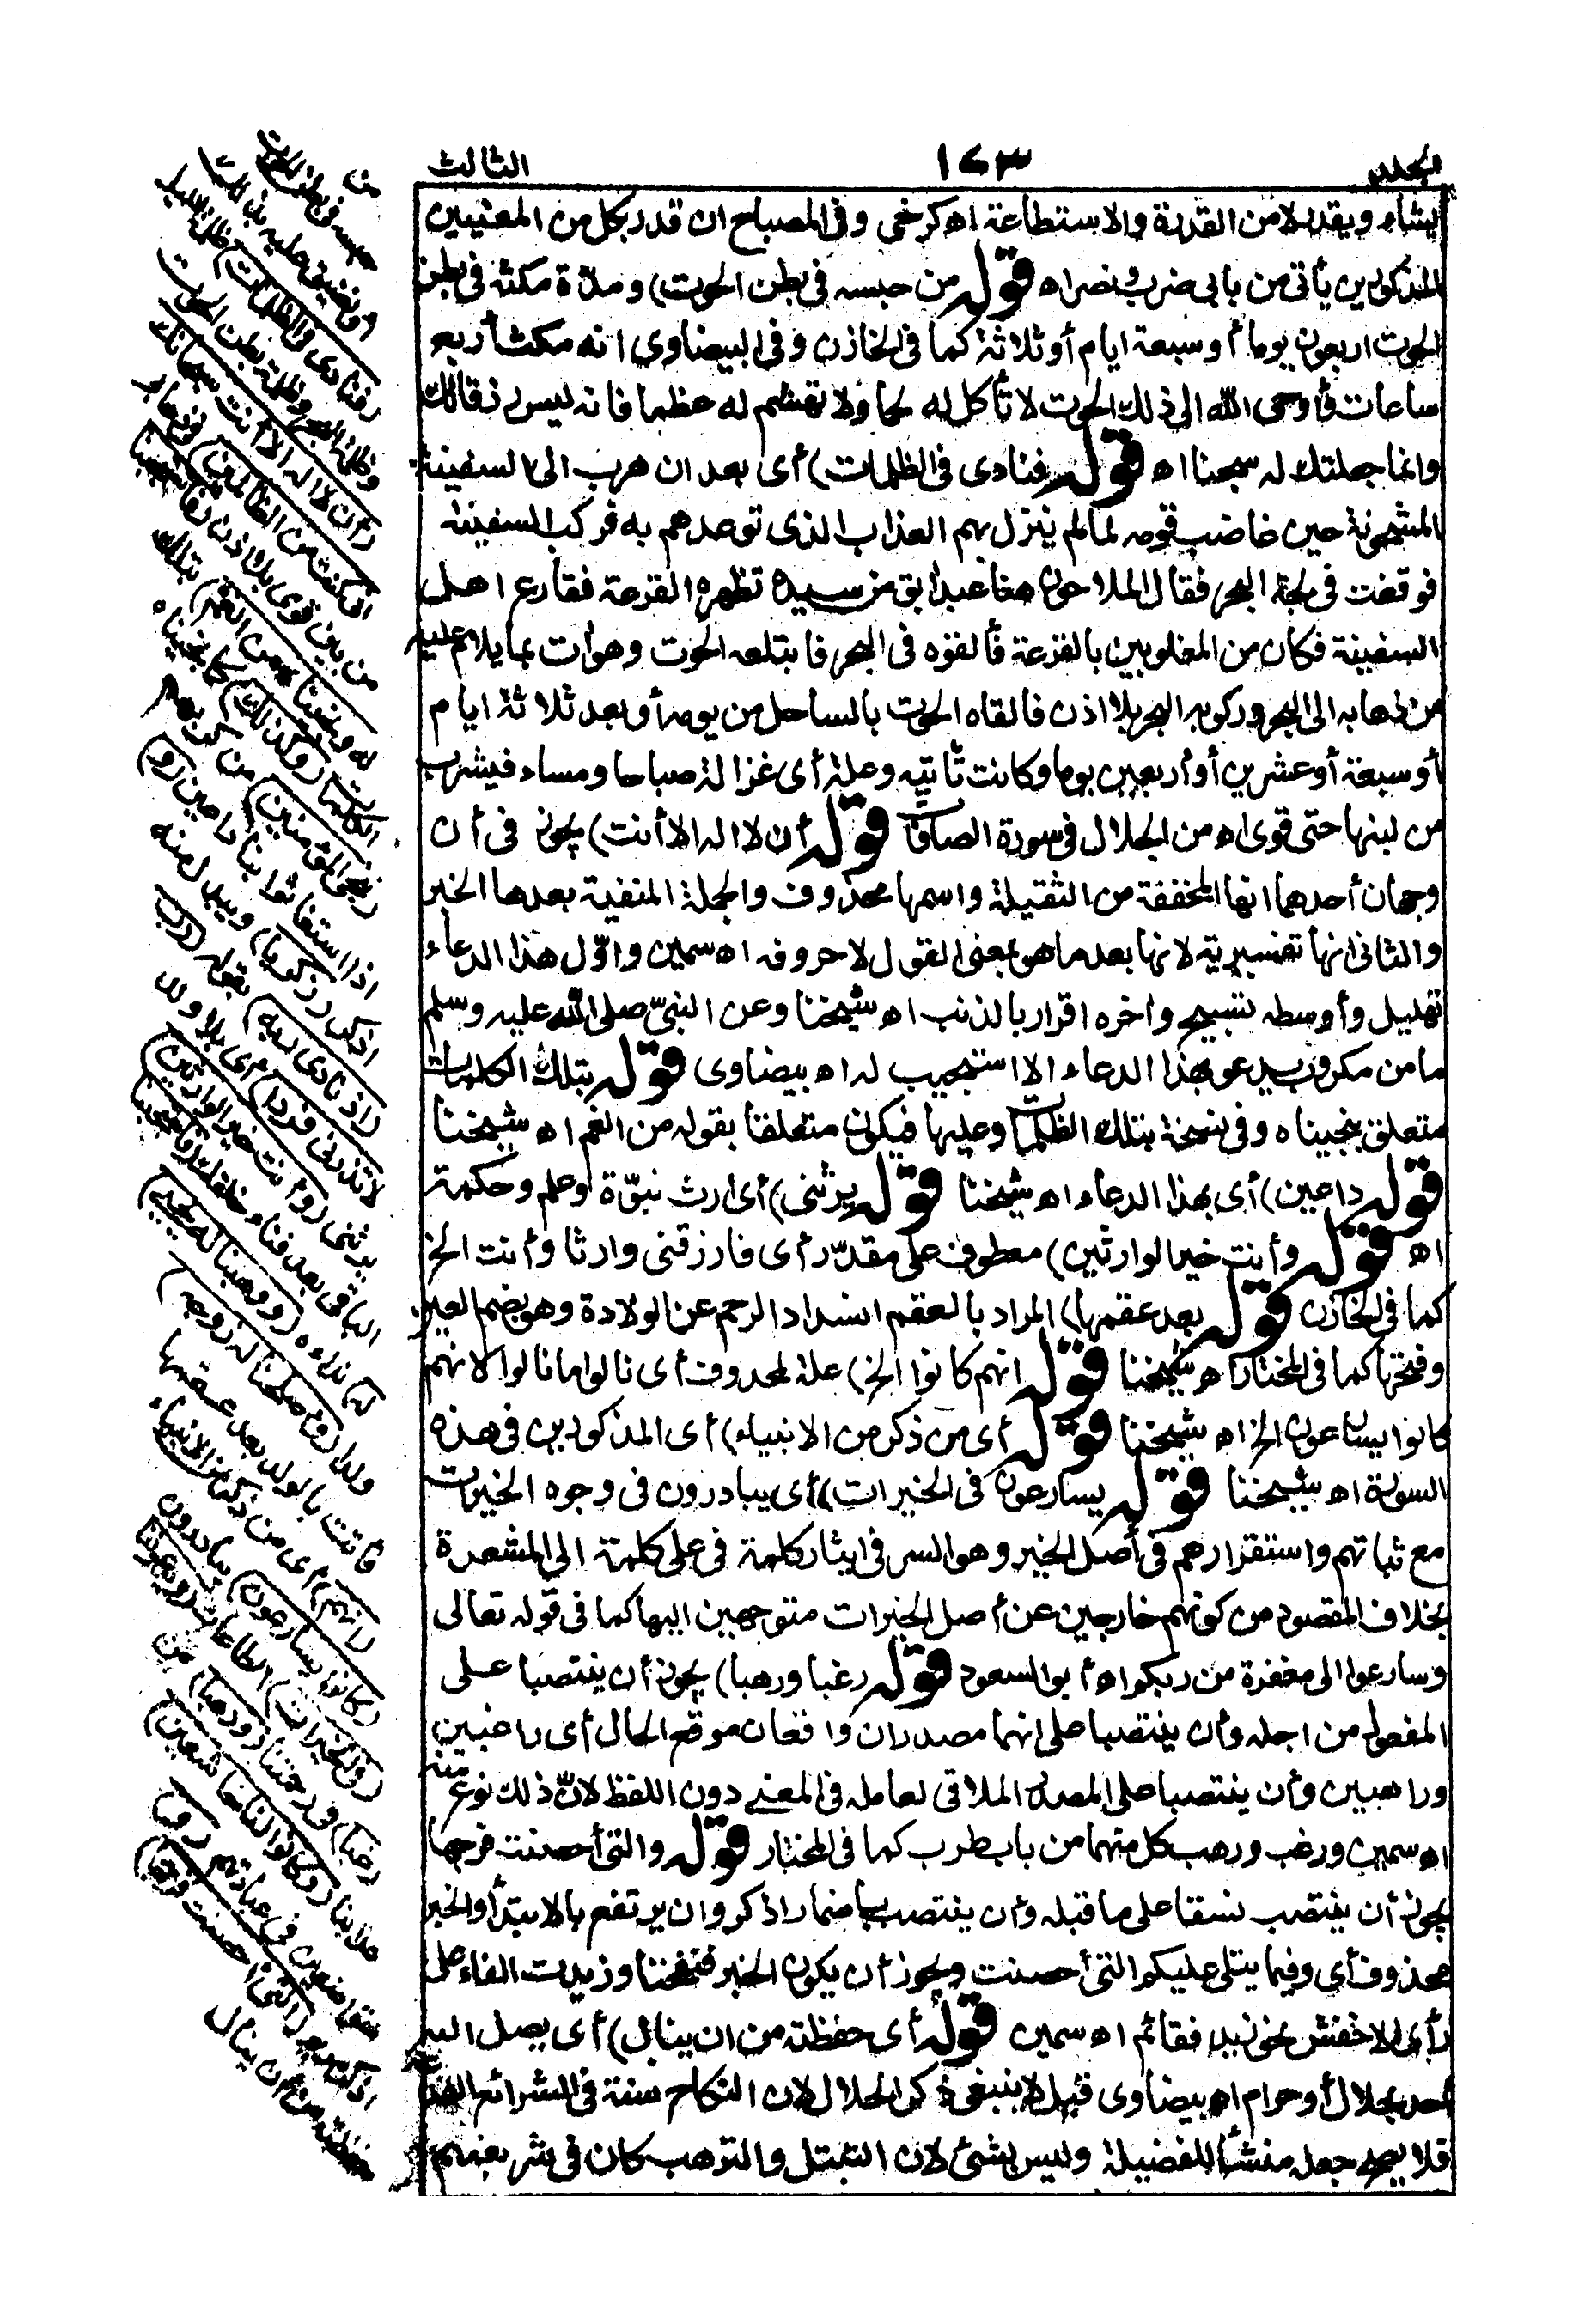 المجلد ١٤٣ الثالث
يشاء ويقدر لا من القدرة والاستطاعة اه كرخى وفى المصباح ان قدر بكل من المعنيين
المذكورين يأتى من بابى ضرب ونصر اه قوله من حبسه فى بطن الحوت) ومدّة مكثه فى بطن
الحوت اربعون يوما أو سبعة ايام أو ثلاثة كما فى الخازن وفى البيضاوى انه مكث أربع
ساعات فأوحى الله الى ذلك الحوت لا تأكل له لحما ولا تهشم له عظما فانه ليس رزقا لك
وانما جعلتك له سجنا اه قوله فنادى فى الظلمات) أى بعد ان هرب الى السفينة
المشحونة حين غاضب قومه لما لم ينزل بهم العذاب الذى توعدهم به فركب السفينة
فوقفت فى لجة البحر فقال الملاحون هنا عبد آبق من سيده تظهره القرعة فقارع اهل
السفينة فكان من المغلوبين بالقرعة فألقوه فى البحر فابتلعه الحوت وهو آت بما يلام عليه
من ذهابه الى البحر وركوبه البحر بلا اذن فالقاه الحوت بالساحل من يومه أو بعد ثلاثة ايام
أو سبعة أو عشرين أو أربعين يوما وكانت تأتيه وعلة أى غزالة صباحا ومساء فيشرب
من لبنها حتى قوى اه من الجلال فى سورة الصافات قوله أن لا اله الا أنت) يجوز فى أن
وجهان أحدهما انها المخففة من الثقيلة واسمها محذوف والجملة المنفية بعدها الخبر
والثانى انها تفسيرية لانها بعد ما هو بمعنى القول لا حروفه اه سمين واوّل هذا الدعاء
تهليل وأوسطه تسبيح وآخره اقرار بالذنب اه شيخنا وعن النبىّ صلى الله عليه وسلم
ما من مكروب يدعو بهذا الدعاء الا استجيب له اه بيضاوى قوله بتلك الكلمات
متعلق بنجيناه وفى نسخة بتلك الظلمات وعليها فيكون متعلقا بقوله من الغم اه شيخنا
قوله داعين) أى بهذا الدعاء اه شيخنا قوله يرثنى) أى ارث نبوّة وعلم وحكمة
اه قوله وأنت خير الوارثين) معطوف على مقدّر أى فارزقنى وارثا وأنت الخ
كما فى الخازن قوله بعد عقمها) المراد بالعقم انسداد الرحم عن الولادة وهو بضم العين
وفتحها كما فى المختار اه شيخنا قوله انهم كانوا الخ) علة لمحذوف أى نالوا ما نالوا لانهم
كانوا يسارعون الخ اه شيخنا قوله أى من ذكر من الانبياء) أى المذكورين فى هذه
السورة اه شيخنا قوله يسارعون فى الخيرات) أى يبادرون فى وجوه الخيرات
مع ثباتهم واستقرارهم فى أصل الخير وهو السر فى ايثار كلمة فى على كلمة الى المشعرة
بخلاف المقصود من كونهم خارجين عن أصل الخيرات متوجهين اليها كما فى قوله تعالى
وسارعوا الى مغفرة من ربكم اه أبو السعود قوله رغبا ورهبا) يجوز أن ينتصبا على
المفعول من اجله وأن ينتصبا على انهما مصدران واقعان موقع الحال أى راغبين
وراهبين وأن ينتصبا على المصدر الملاقى لعامله فى المعنى دون اللفظ لانّ ذلك نوع منه
اه سمين ورغب ورهب كل منهما من باب طرب كما فى المختار قوله والتى أحصنت فرجها
يجوز أن ينتصب نسقا على ما قبله وأن ينتصب باضمار اذكر وان يرتفع بالابتدأ والخبر
محذوف أى وفيما يتلى عليكم التى أحصنت ويجوز أن يكون الخبر فنفخنا وزيدت الفاء على
رأى الاخفش نحو زيد فقائم اه سمين قوله أى حفظته من ان ينال) أى يصل اليه
أحد بحلال أو حرام اه بيضاوى قيل لا ينبغى ذكر الحلال لان النكاح سنة فى الشرائع
فلا يصح جعله منشأ للفضيلة وليس بشئ لان التبتل والترهب كان فى شريعتهم
من
حبسه فى بطن الحوت
أو نضيق عليه بذلك
(فنادى فى الظلمات) ظلمة الليل
وظلمة البحر وظلمة بطن الحوت
(أن لا اله الا أنت سبحانك
انى كنت من الظالمين) فى ذهابى
من بين قومى بلا اذن (فاستجبنا
له ونجيناه من الغم) بتلك
الكلمات (وكذلك) كما نجيناه
(ننجى المؤمنين) من كربهم
اذا استغاثوا بنا داعين (و)
اذكر (زكريا) ويبدل منه
(اذ نادى ربه) بقوله (رب
لا تذرنى فردا) أى بلا ولد
يرثنى (وأنت خير الوارثين)
الباقى بعد فناء خلقك (فاستجبنا
له) نداءه (ووهبنا له يحيى)
ولدا (وأصلحنا له زوجه)
فأتت بالولد بعد عقمها
(انهم) أى من ذكر من الانبياء
(كانوا يسارعون) يبادرون
(فى الخيرات) الطاعات (ويدعوننا
رغبا) فى رحمتنا (ورهبا) من
عذابنا (وكانوا لنا خاشعين)
متواضعين فى عبادتهم (و)
اذكر مريم (التى أحصنت فرجها)
حفظته من أن ينال